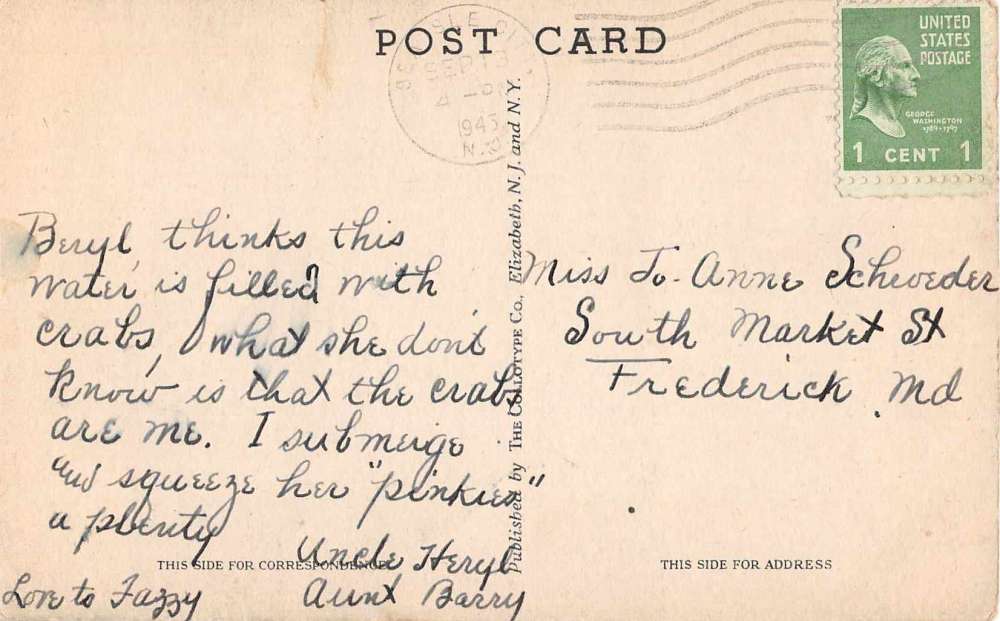 POST CARD
SEP 13
4
1943
N.J.
UNITED
STATES
POSTAGE
GEORGE
WASHINGTON
1789-1797
1 CENT 1
Beryl thinks this
water is filled with
crabs, what she don't
know is that the crabs
are me. I submerge
and squeeze her "pinkies"
a plenty
Uncle Heryl
Aunt Barry
Love to Fazzy
Published by THE COLLOTYPE Co., Elizabeth, N. J. and N. Y.
Miss Jo-Anne Schroeder
South Market St
Frederick, Md
THIS SIDE FOR CORRESPONDENCE
THIS SIDE FOR ADDRESS